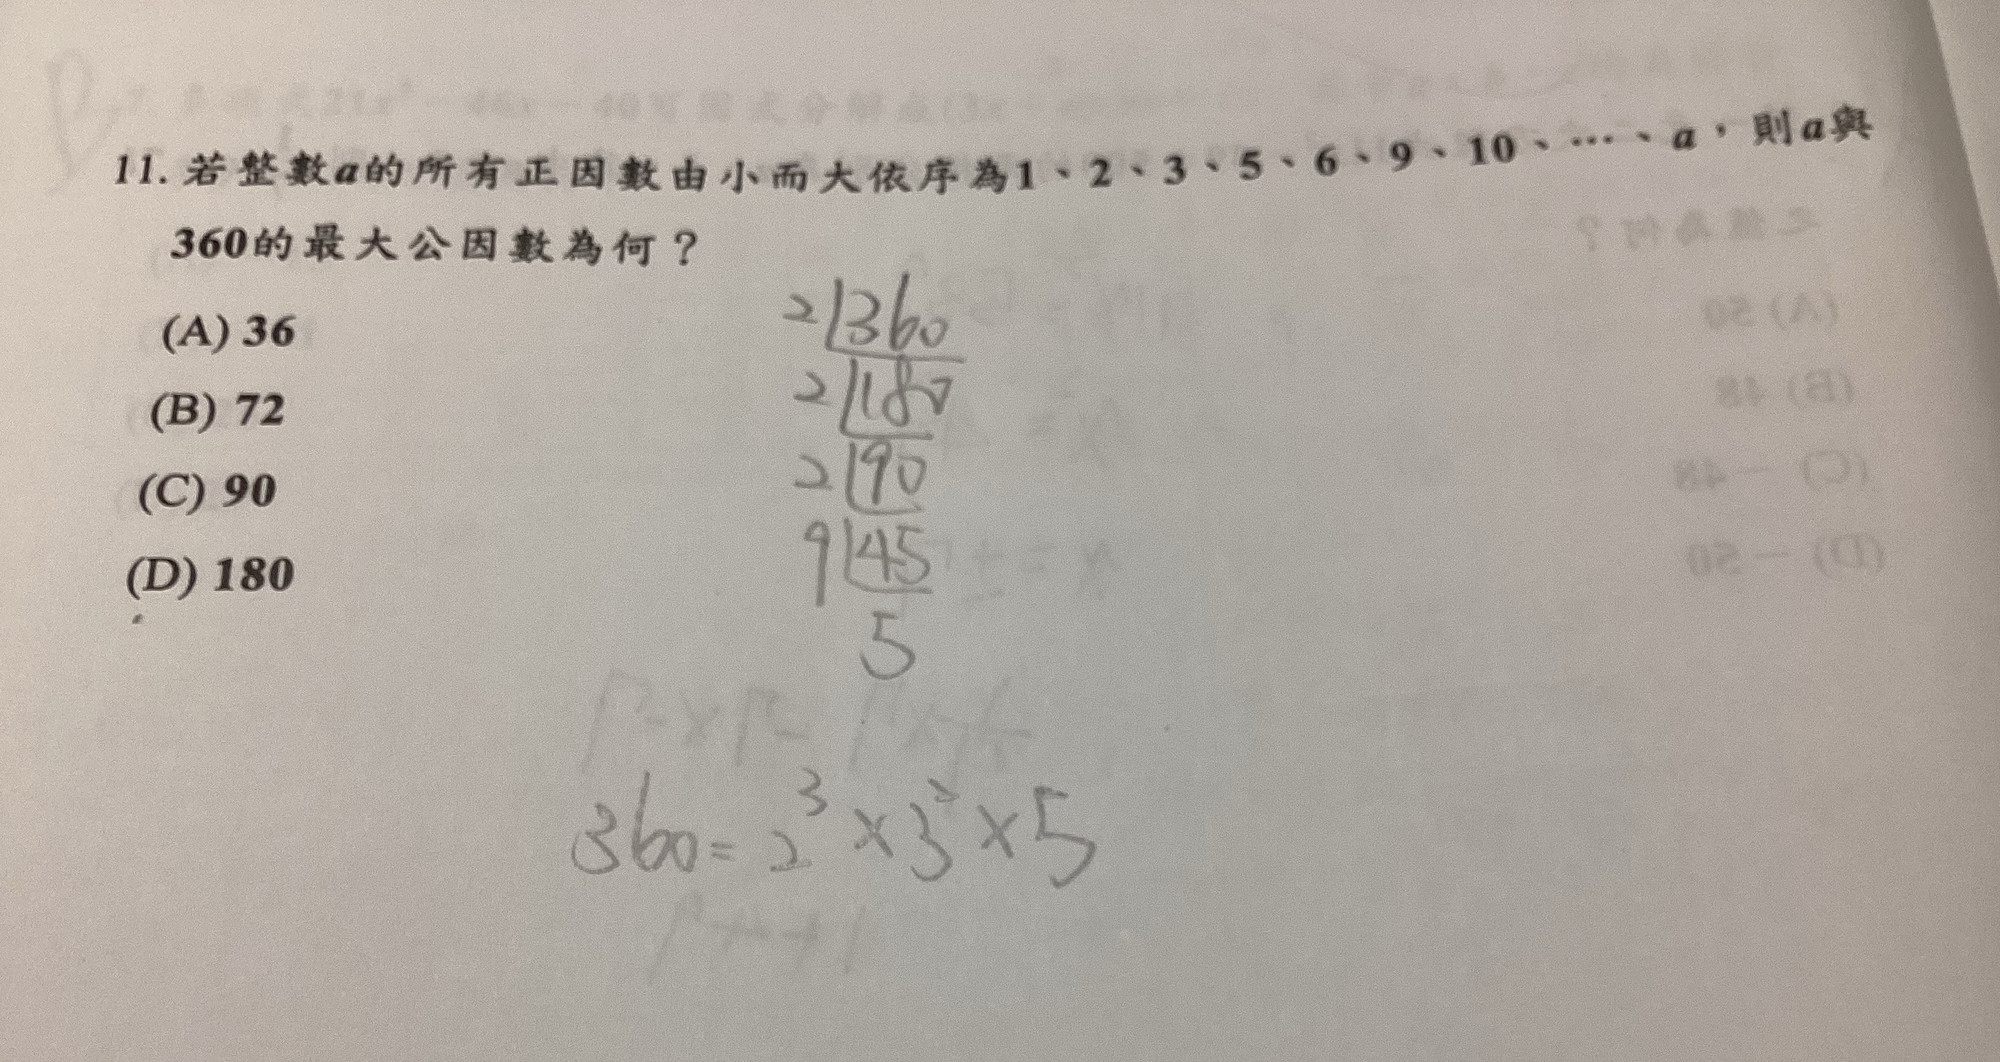 11. 若整數a的所有正因數由小而大依序為1、2、3、5、6、9、10、…、a，則a與
360的最大公因數為何？
(A) 36
(B) 72
(C) 90
(D) 180
2 360
2 180
2 90
9 45
5
360=2³×3²×5